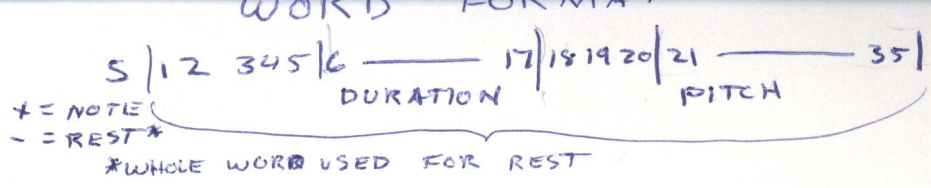 WORD FORMAT
S | 1 2 3 4 5 | 6 —— 17 | 18 19 20 | 21 —— 35 |
DURATION PITCH
+ = NOTE
- = REST*
*WHOLE WORD USED FOR REST